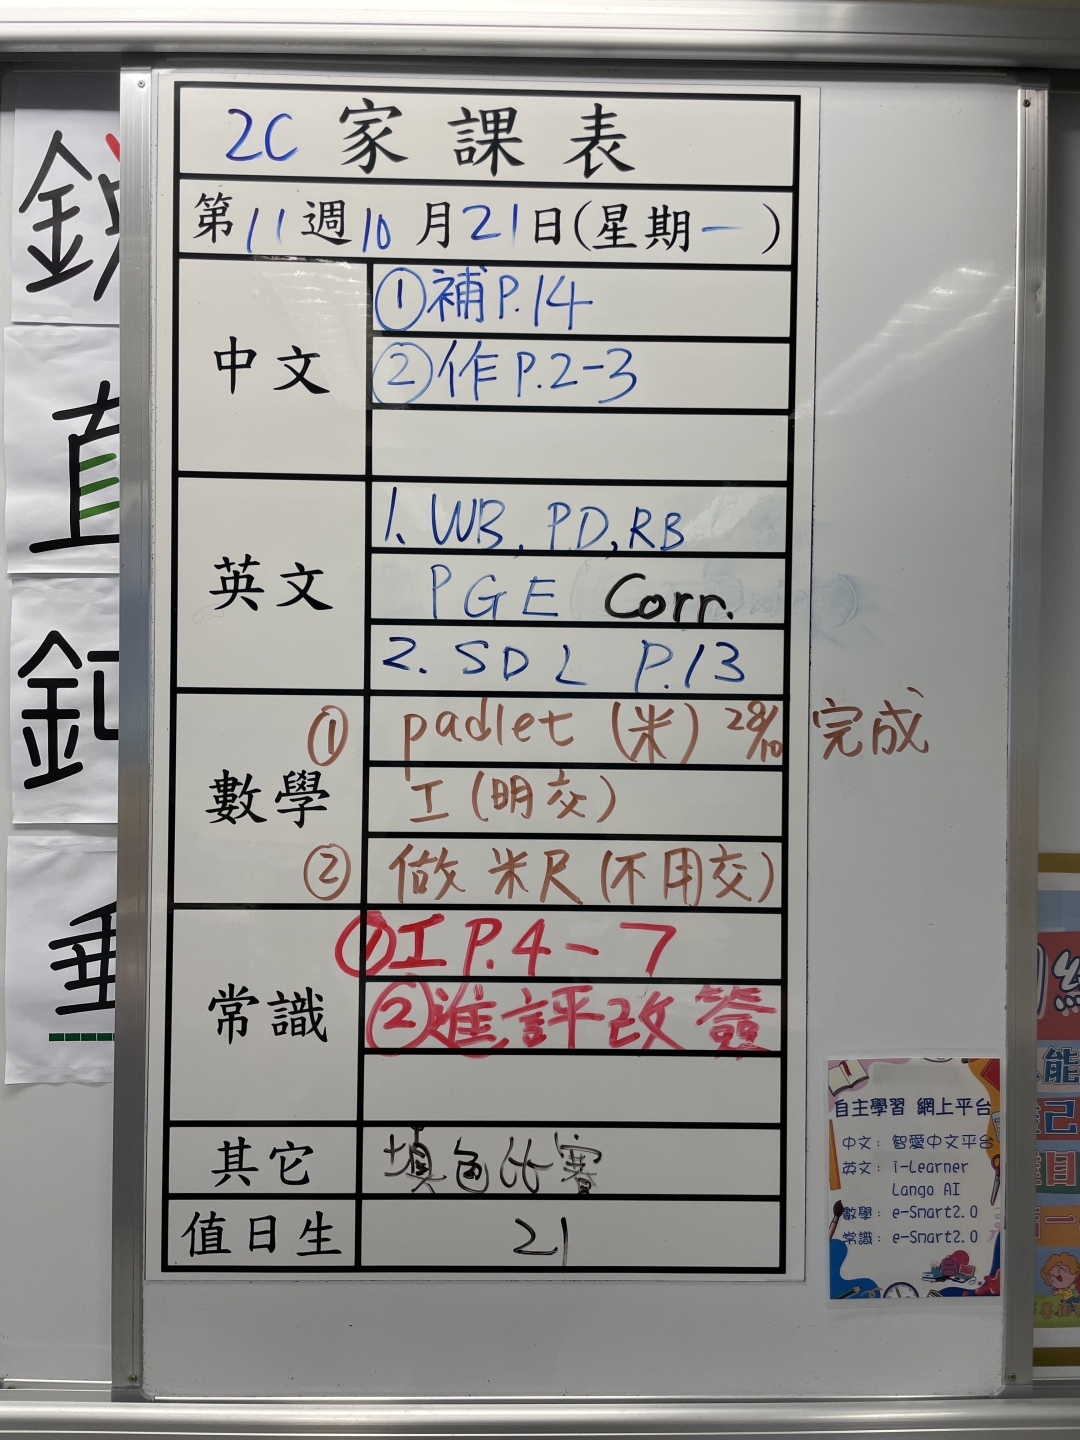 2C 家課表
第11週10月21日(星期一)
中文
①補P.14
②作P.2-3
英文
1. WB, PD, RB
PGE Corr.
2. SDL P.13
數學
① padlet (米) 28/10 完成
工(明交)
② 做米尺(不用交)
常識
①工P.4-7
②進評改簽
其它
填色比賽
值日生
21
直
垂
自主學習 網上平台
中文：智愛中文平台
英文：i-Learner
Lango AI
數學：e-Smart2.0
常識：e-Smart2.0
能
己
一